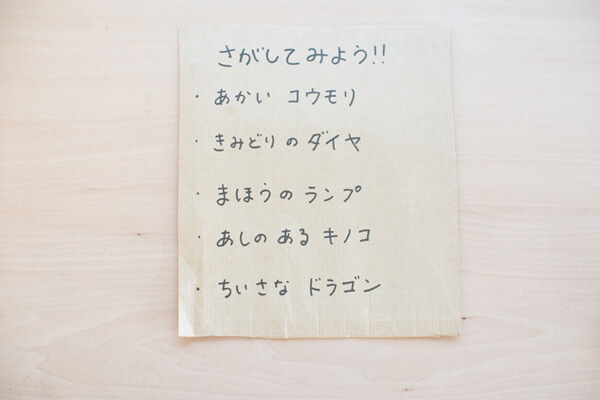 さがしてみよう!!
・あかい コウモリ
・きみどりの ダイヤ
・まほうの ランプ
・あしの ある キノコ
・ちいさな ドラゴン